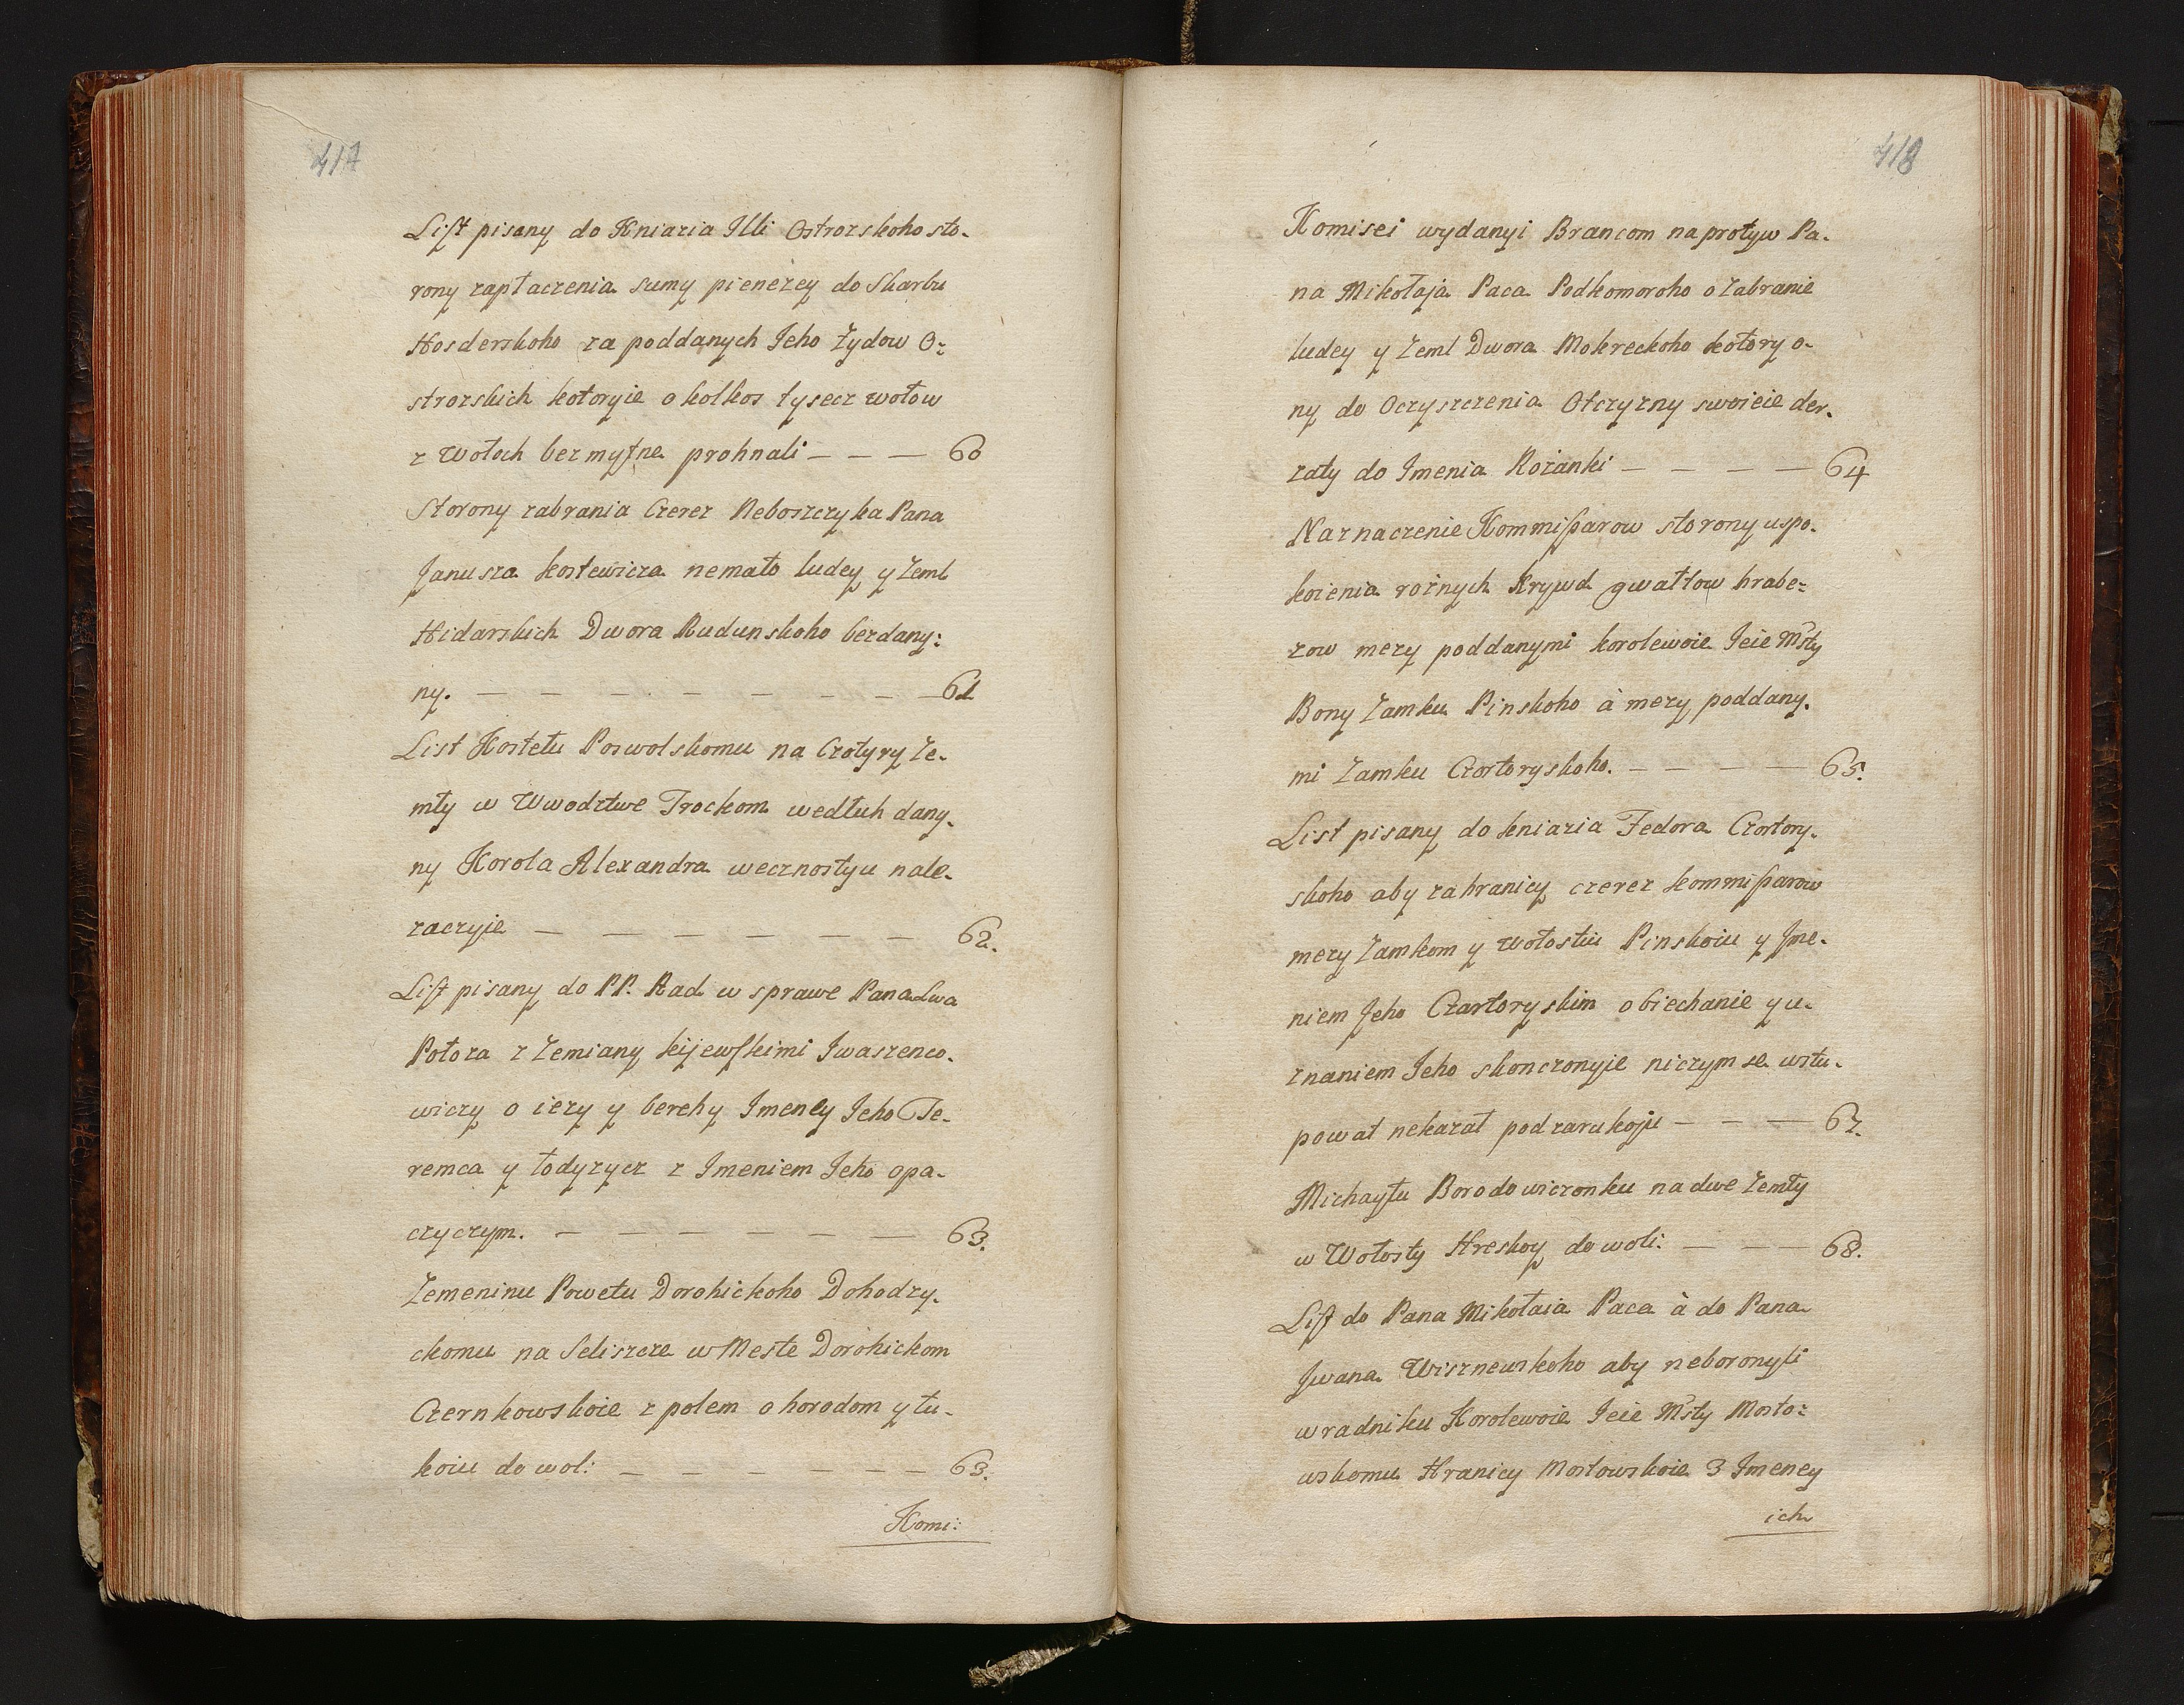 417
List pisany do Kniazia Illi Ostrozskoho sto-
rony zapłaczenia sumy pienezey do Skarbu
Hosderskoho za poddanych Jeho Zydow O:
strozskich kotoryie o kolkos tysecz wołow
z Wołoch bez myta prohnali — — — 60
Storony zabrania Czerez Neboszczyka Pana
Janusza kostewicza nemało ludey y Zeml
Hidarskich Dwora Rudunskoho bezdany:
ny. — — — — — — — 61
List Kostełu Poswolskomu na Czotyry Ze-
mły w Wwodztwe Trockom wedłuh dany-
ny Korola Alexandra wecznostyu nale-
zaczyie — — — — — — 62.
List pisany do PP. Rad w sprawe Pana Lwa
Połoza z Zemiany kijewskimi Iwaszenco-
wiczy o iezy y berehy Imeney Jeho Te-
remca y łodyzycz z Imeniem Jeho opa-
czyczym. — — — — — — 63.
Zemeninu Powetu Dorohickoho Dohodzy-
ckomu na Seliszcze w Meste Dorohickom
Czernkowskoie z polem ohorodom y łu-
koiu do woli: — — — — — 63.
Komi:
418
Komisei wydanyi Brancom naprotyw Pa-
na Mikołaja Paca Podkomoroho o Zabranie
ludey y Zeml Dwora Mokreckoho kotory o-
ny do Oczyszczenia Otczyzny swoieie der-
zały do Imenia Rożanki — — — — 64
Naznaczenie Kommissarow storony uspo-
koienia rożnych Krywd gwałtow hrabe:
zow mezy poddanymi korolewoie Jeie Msty
Bony Zamku Pinskoho à mezy poddany-
mi Zamku Czortoryskoho. — — — — 65.
List pisany do kniazia Fedora Czortory-
skoho aby zahranicy czerez kommissarow
mezy Zamkom y wołostiu Pinskoiu y Ime-
niem Jeho Czartoryskim obiechanie y u-
znaniem Jeho skonczonyie niczym se wstu-
powat nekazał pod zarukoju — — — 67.
Michayłu Borodowiczonku na dwe Zemły
w Wołosty Hreskoy do woli: — — — 68.
List do Pana Mikołaia Paca à do Pana
Jwana Wisznewskoho aby neboronyli
wradniku Korolewoie Jeie Msty Mosto:
wskomu Hranicy Mostowskoie 3 Imeney
ich